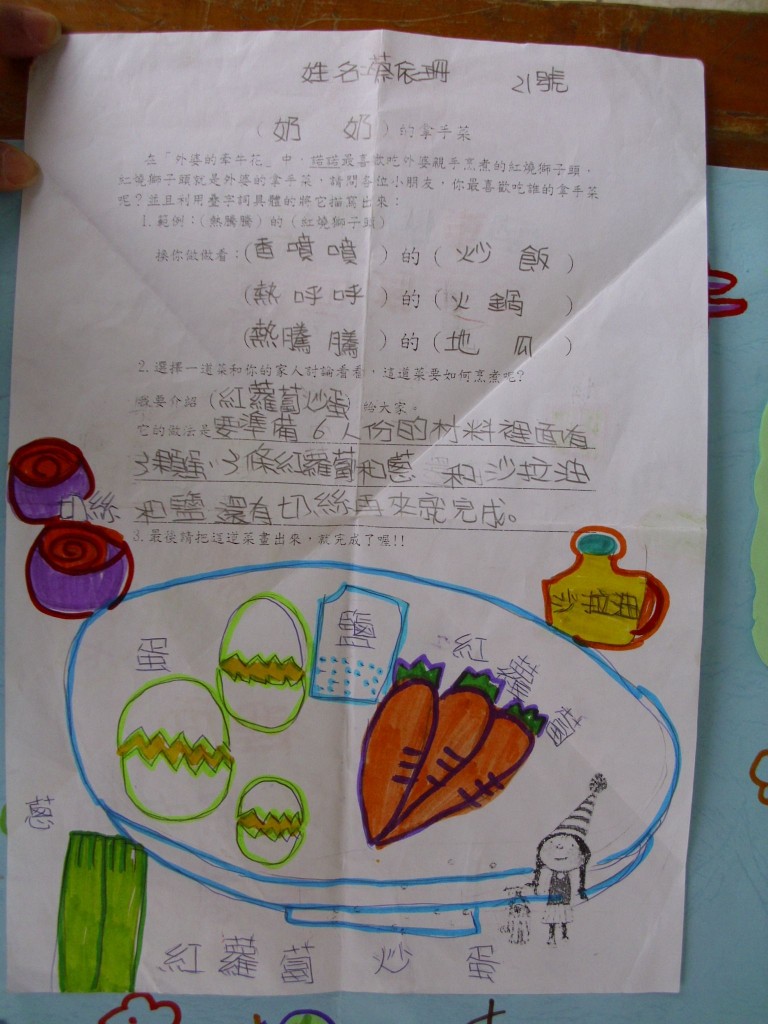 姓名:蔡依珊 21號
(奶 奶)的拿手菜
在「外婆的牽牛花」中，諾諾最喜歡吃外婆親手烹煮的紅燒獅子頭。
紅燒獅子頭就是外婆的拿手菜，請問各位小朋友，你最喜歡吃誰的拿手菜
呢？並且利用疊字詞具體的將它描寫出來：
1.範例：(熱騰騰)的(紅燒獅子頭)
換你做做看：(香噴噴)的(炒飯)
(熱呼呼)的(火鍋)
(熱騰騰)的(地瓜)
2.選擇一道菜和你的家人討論看看，這道菜要如何烹煮呢?
概要介紹(紅蘿蔔炒蛋)給大家。
它的做法是要準備6人份的材料裡面有
3顆蛋、3條紅蘿蔔和蔥 和沙拉油
和鹽還有切絲再來就完成。
切絲
3.最後請把這道菜畫出來，就完成了喔!!
鹽
蛋
紅蘿蔔
蔥
紅蘿蔔炒蛋